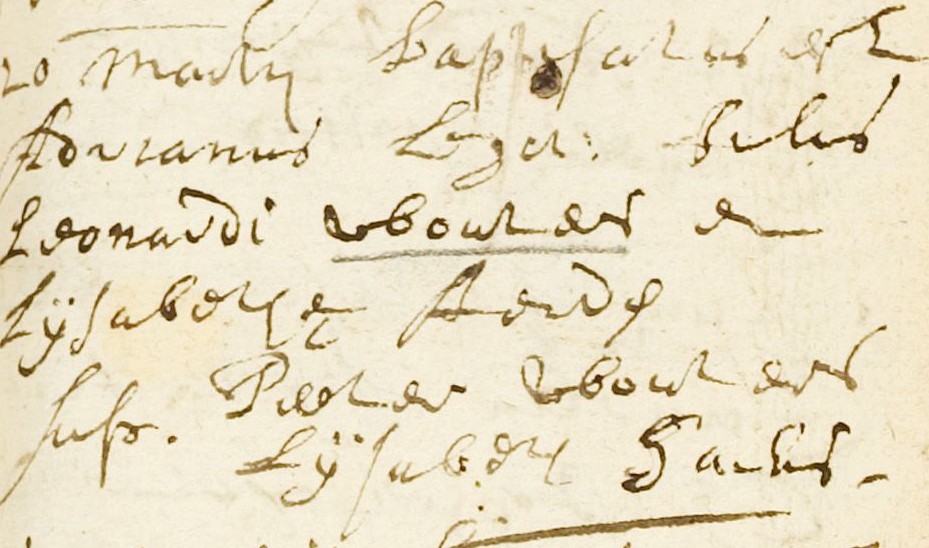 20 Martij baptisatus est
Adrianus Legit: filius
Leonardi wbouters et
Lijsabethe Aerdts
susc. Peeter wbouters
Lijsabeth